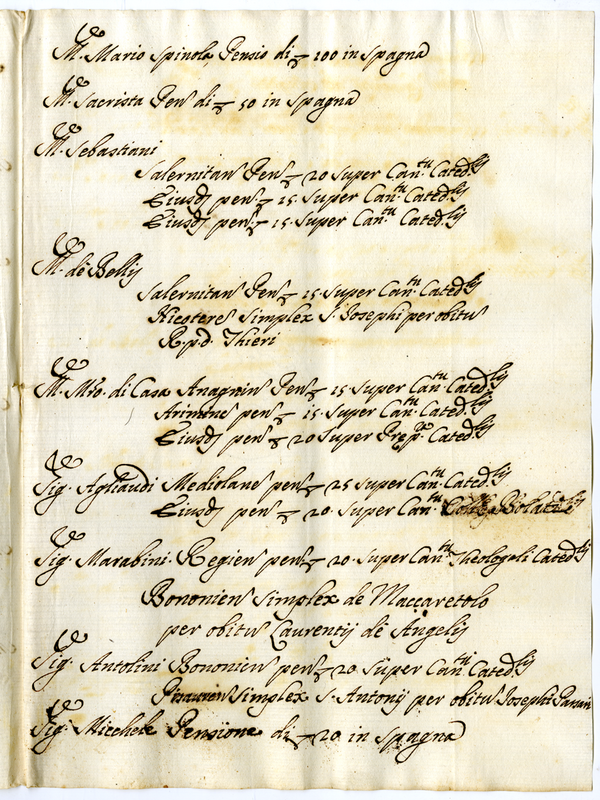 M. Mario Spinola Pensio di ▽ 100 in Spagna
M. Sacrista Pens di ▽ 50 in Spagna
M. Sebastiani
Salernitans Pens ▽ 20 Super Can.tu Catedlis
Eiusdj pens ▽ 15. Super Can.tu Catedlis
Eiusdj pens ▽ 15. Super Can.tu Catedlis
M. de Bellis
Salernitans Pens ▽ 15. Super Can.tu Catedlis
Nicoteres Simplex S. Josephi per obitus
R.p.d. Thieri
M. Mro. di Casa Anagnins Pens ▽ 15. Super Can.tu Catedlis
Arimins pens ▽ 15. Super Can.tu Catedlis
Eiusdj pens ▽ 20 Super Prepra Catedlis
Sig. Agliaudi Mediolans pens ▽ 25 Super Can.tu Catedlis
Eiusdj pens ▽ 20. Super Can.tu
Sig. Marabini. Regiens pens ▽ 20. Super Can.tu Theologali Catedlis
Bononiens Simplex de Maccaretolo
per obitus Laurentij de Angelis
Sig. Antolini Bononiens pens ▽ 20. Super Can.tu Catedlis
Simplex S. Antonij per obitus Josephi
Sig. Micchele Pensione di ▽ 20 in Spagna